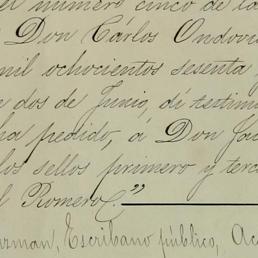 el número cinco de la
Don Cárlos Ondovi
mil ochocientos sesenta y
dos de Junio, dí testimo
ha pedido, á Don Joa
los sellos primero y terce
l Romero."
uzman, Escribano publico, Ac